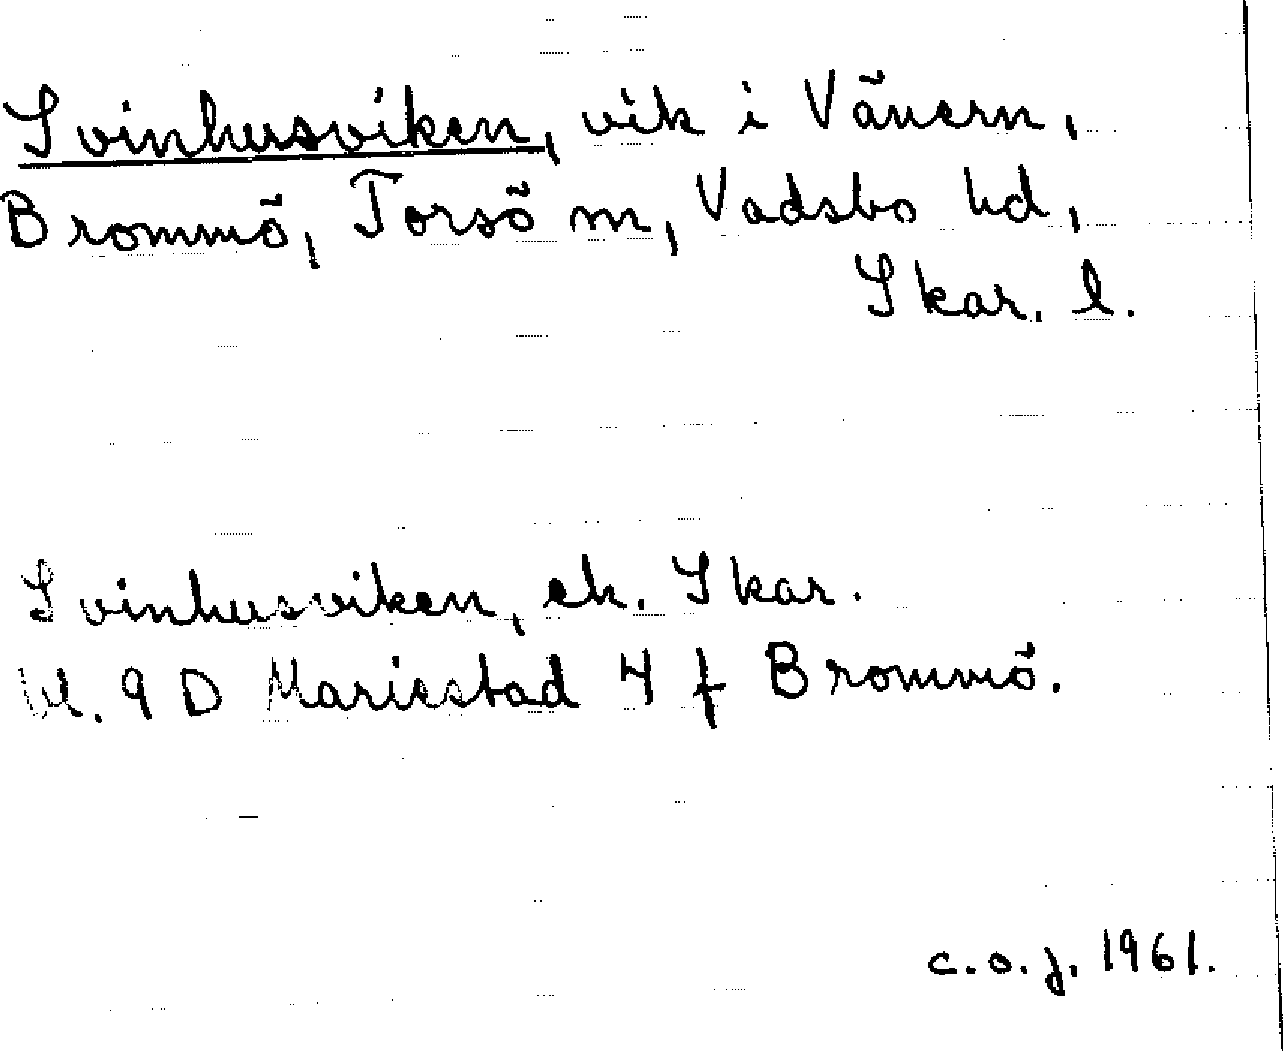 Svinhusviken, vik i Vänern,
Brommö, Torsö sn, Vadsbo hd,
Skar. l.
Svinhusviken, ek. Skar.
bl. 9 D Mariestad 4 f Brommö.
C.O.J. 1961.